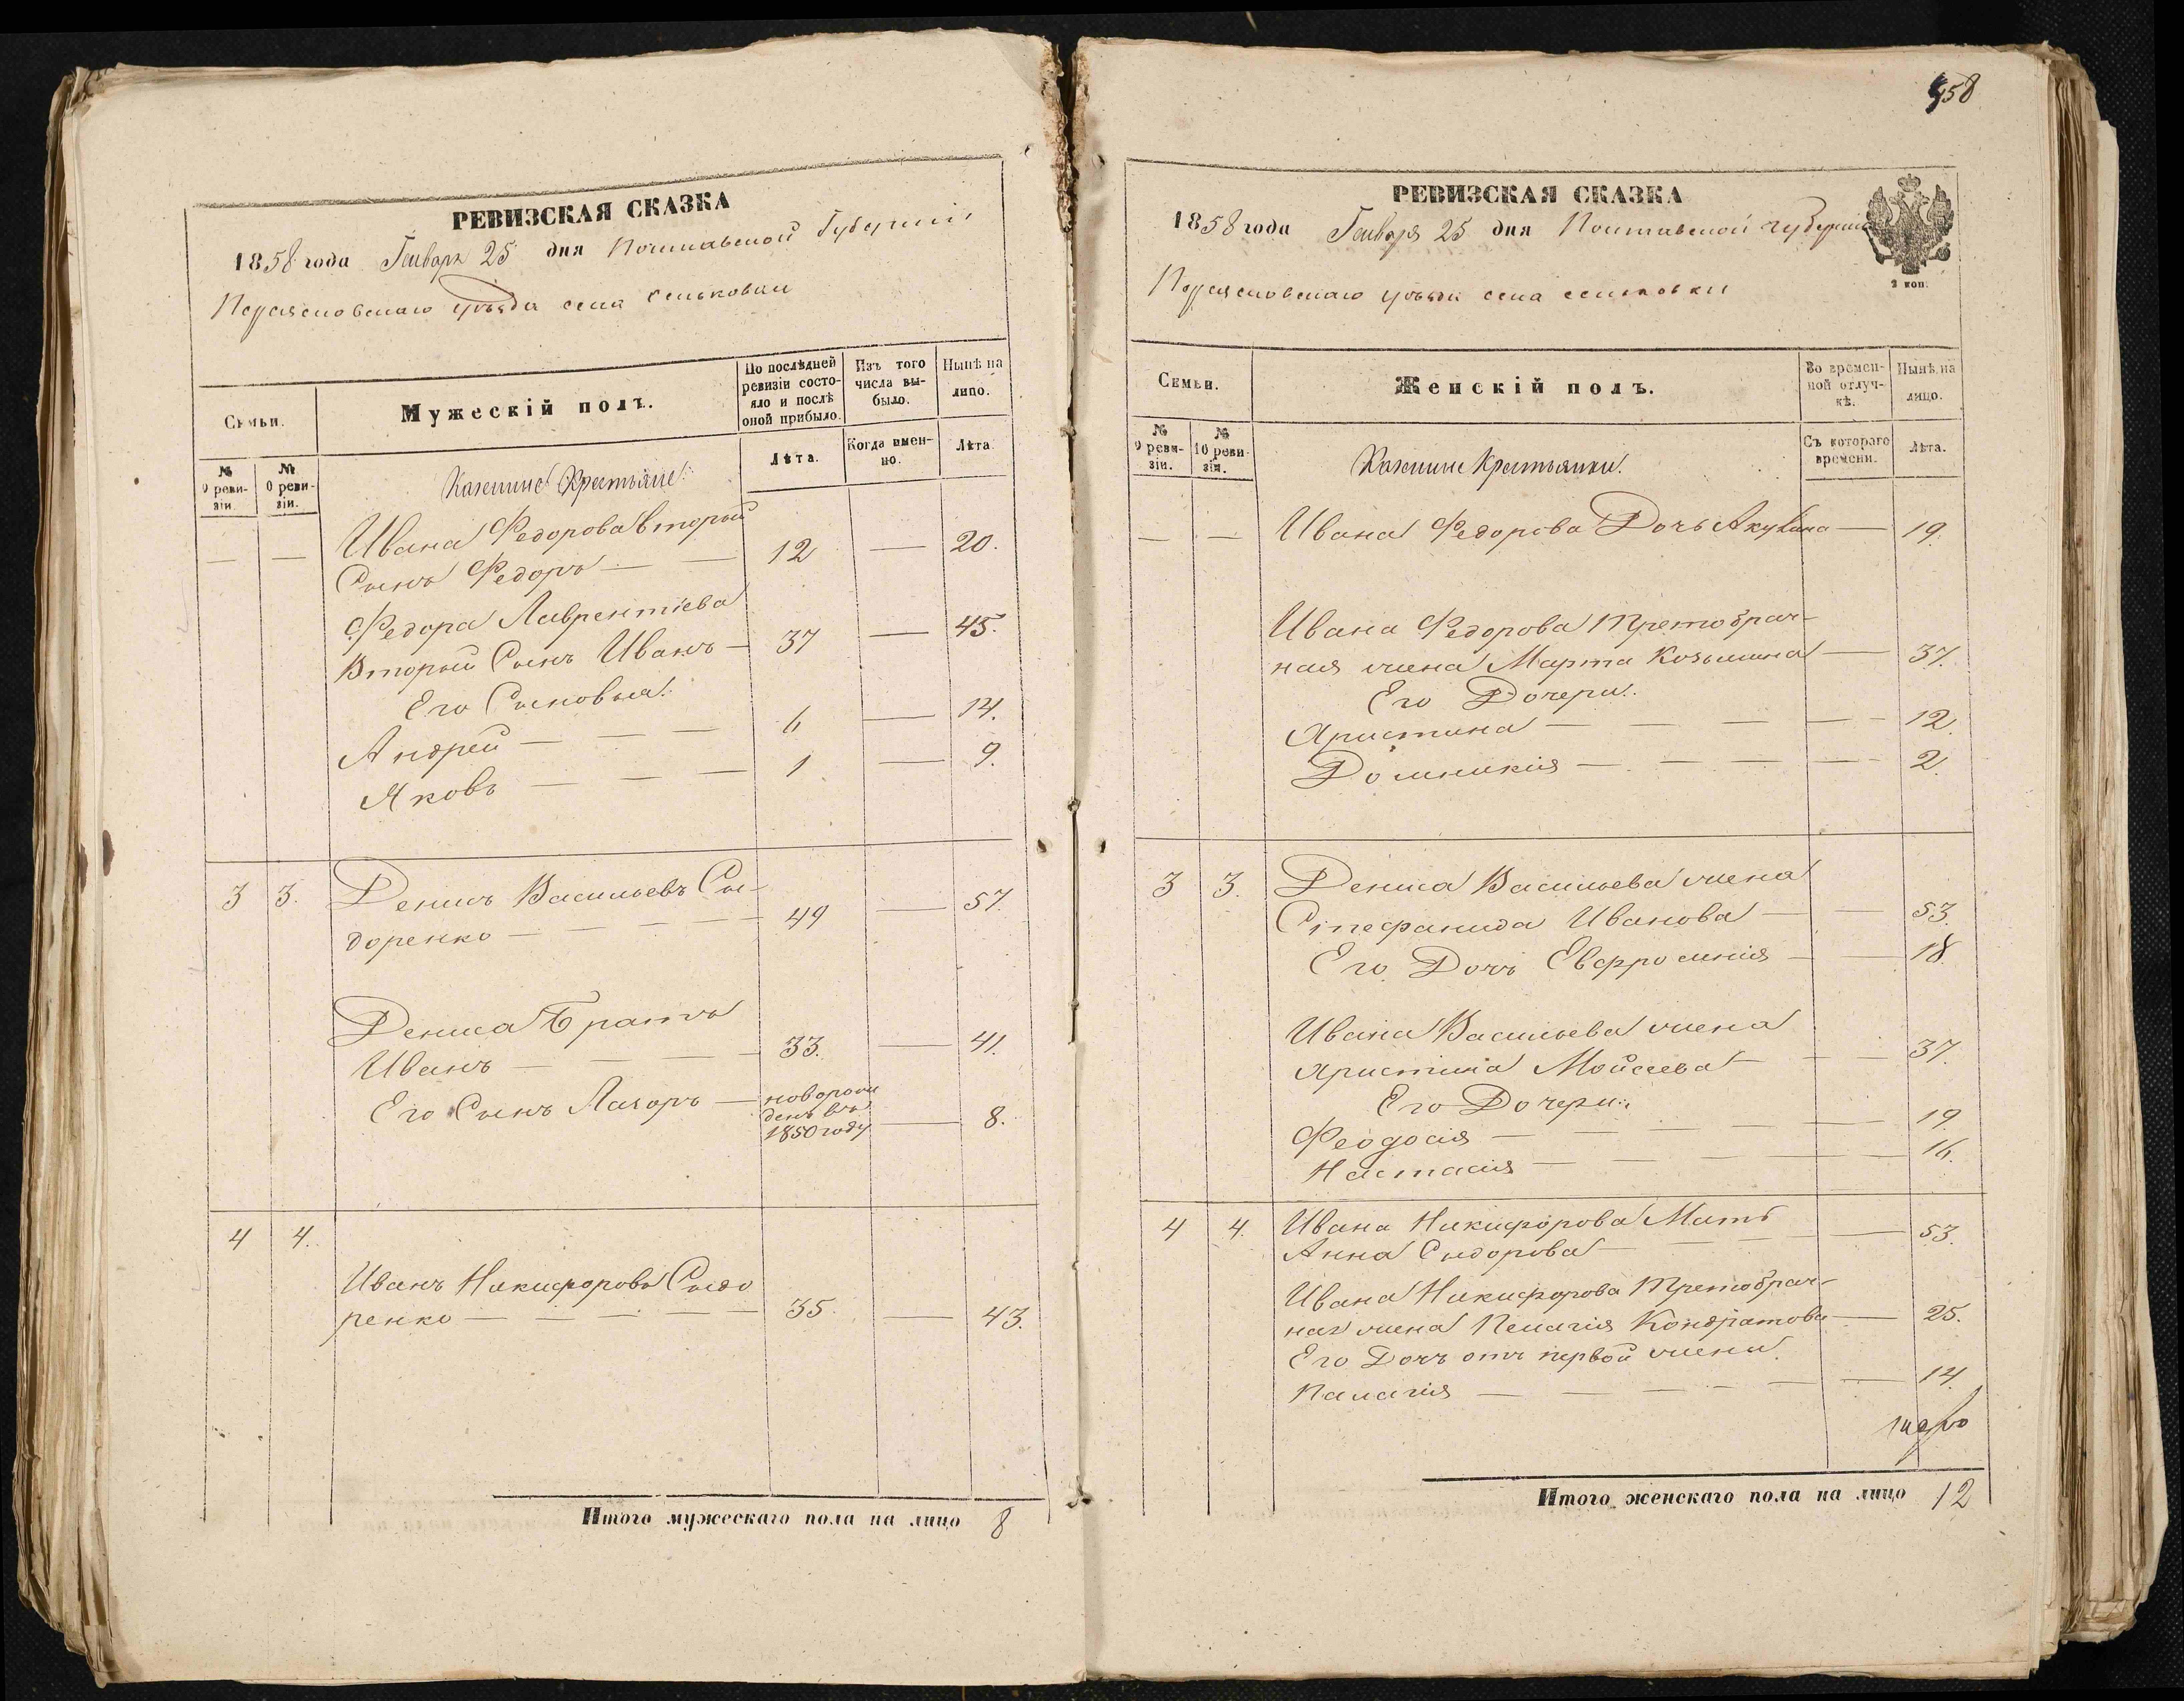 РЕВИЗСКАЯ СКАЗКА
1858 года Генваря 25 дня Полтавской Губерніи
Переяславскаго уѣзда села Сеньковки
Семьи.
Мужескій полъ.
По послѣдней ревизіи состо-
яло и послѣ оной прибыло.
Изъ того числа вы-
было.
Нынѣ на лицо.
№ 9 реви-
зіи.
№ 10 реви-
зіи.
Казенные Крестьяне:
Лѣта.
Когда имен-
но.
Лѣта.
— — Ивана Федорова вторый
Сынъ Федоръ — — 12 — 20.
Федора Лаврентіева
Вторый Сынъ Иванъ — 37 — 45.
Его Сыновья:
Андрей — — — 6 — 14.
Яковъ — — — 1 — 9.
3 3. Денисъ Васильевъ Сы-
доренко — — — — 49 — 57.
Дениса Братъ
Иванъ — — — 33. — 41.
Его Сынъ Лазоръ — новорож
денъ въ
1850 году — 8.
4 4.
Иванъ Никифоровъ Сидо
ренко — — — — 35. — 43.
Итого мужескаго пола на лицо 8
458
РЕВИЗСКАЯ СКАЗКА
1858 года Генваря 25 дня Полтавской губерніи
2 коп.
Переяславскаго уѣзда села сеньковки
Семьи.
Женскій полъ.
Во времен-
ной отлуч-
кѣ.
Нынѣ на лицо.
№ 9 реви-
зіи.
№ 10 реви-
зіи.
Казенные Крестьянки:
Съ котораго времени.
Лѣта.
— — Ивана Федорова Дочь Акулина — 19.
Ивана Федорова Третобрач-
ная жена Марта Козьмина — 37.
Его Дочери:
Христина — — — — 12.
Домникія — — — — 2.
3 3. Дениса Васильева жена
Стефанида Иванова — — 53.
Его Дочь Евфросинія — — 18.
Ивана Васильева жена
Христина Мойсеева — — 37.
Его Дочери:
Феодосія — — — — 19.
Настасія — — — — 16.
4 4. Ивана Никифорова Мать
Анна Сидорова — — — — 53.
Ивана Никифорова Третобрач-
ная жена Пелагія Кондратова — 25.
Его Дочь отъ первой жены
Палагія — — — — 14.
Итого женскаго пола на лицо 12